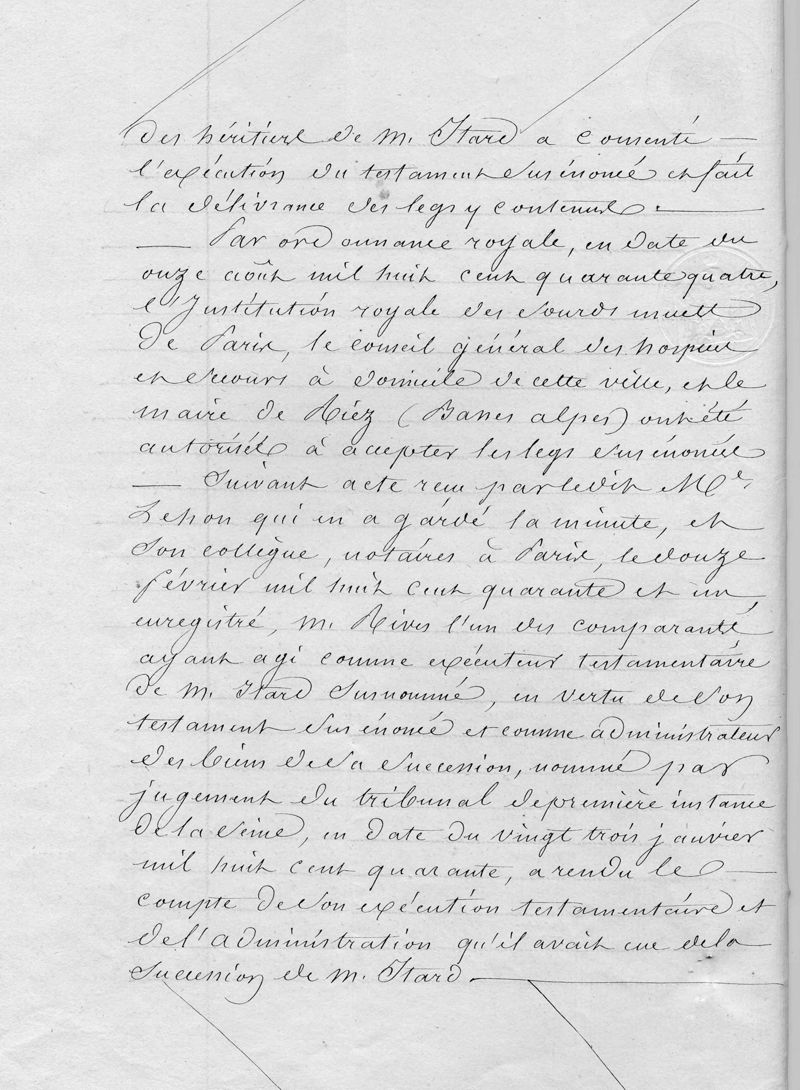 des héritiers de M. Itard a consenti —
l'exécution du testament susénoncé et fait
la délivrance des legs y contenus. —
— Par ordonnance royale, en date du
onze août mil huit cent quarante quatre,
l'Institution royale des sourds muets
de Paris, le conseil général des hospices
et secours à domicile de cette ville, et le
maire de Riez (Basses alpes) ont été
autorisés à accepter les legs susénoncés
— Suivant acte reçu par ledit Me
Lehon qui en a gardé la minute, et
son collègue, notaires à Paris, le douze
février mil huit cent quarante et un,
enregistré, M. Rives l'un des comparants
ayant agi comme exécuteur testamentaire
de M. Itard susnommé, en vertu de son
testament susénoncé et comme administrateur
des biens de sa succession, nommé par
jugement du tribunal de première instance
de la Seine, en date du vingt trois janvier
mil huit cent quarante, a rendu le —
compte de son exécution testamentaire et
de l'administration qu'il avait eue de la
succession de M. Itard. —